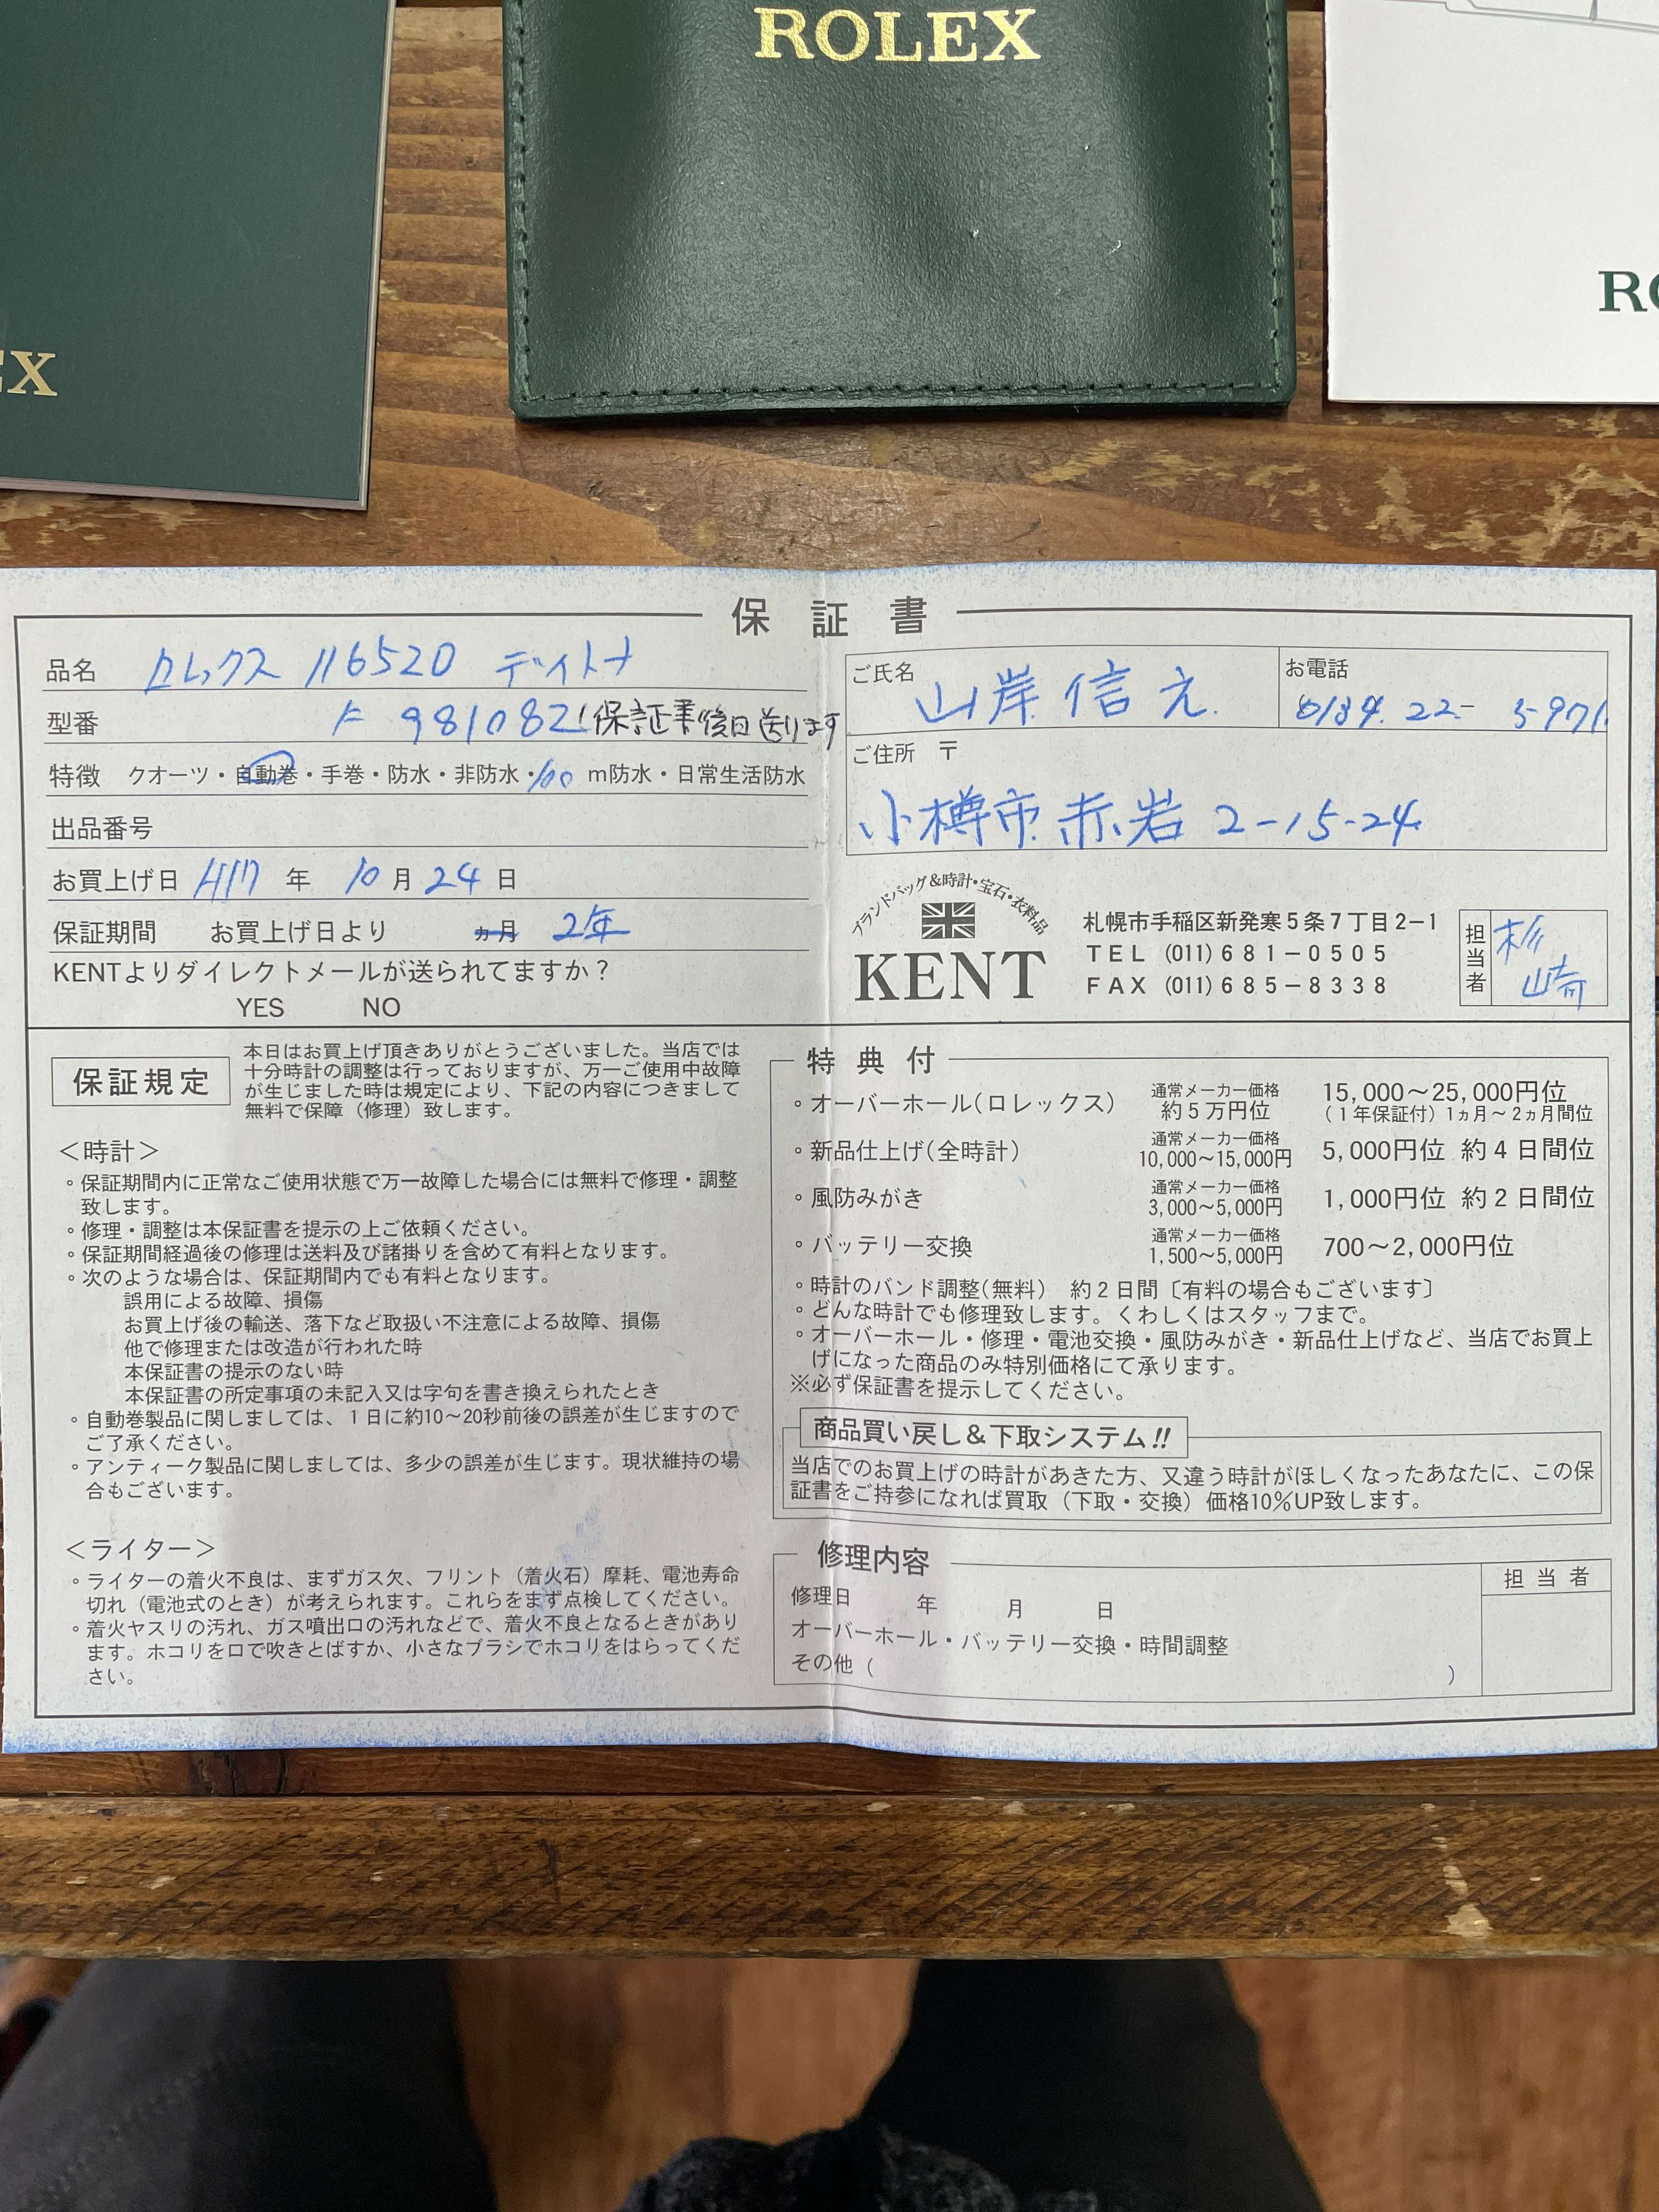 ROLEX
EX
RO
保証書
品名 ロレックス 116520 デイトナ
型番 F 981082 保証書後日送ります
特徴 クオーツ・自動巻・手巻・防水・非防水・100 m防水・日常生活防水
出品番号
お買上げ日 H17 年 10 月 24 日
保証期間 お買上げ日より ヵ月 2年
KENTよりダイレクトメールが送られてますか？
YES NO
ご氏名 山岸 信 え
お電話
0134. 22- 5971
ご住所 〒
小樽市 赤岩 2-15-24
ブランドバッグ&時計・宝石・衣料品
KENT
札幌市手稲区新発寒5条7丁目2−1
TEL (011)681−0505
FAX (011)685−8338
担当者 杉山奇
保証規定
本日はお買上げ頂きありがとうございました。当店では
十分時計の調整は行っておりますが、万一ご使用中故障
が生じました時は規定により、下記の内容につきまして
無料で保障（修理）致します。
＜時計＞
。保証期間内に正常なご使用状態で万一故障した場合には無料で修理・調整
致します。
。修理・調整は本保証書を提示の上ご依頼ください。
。保証期間経過後の修理は送料及び諸掛りを含めて有料となります。
。次のような場合は、保証期間内でも有料となります。
誤用による故障、損傷
お買上げ後の輸送、落下など取扱い不注意による故障、損傷
他で修理または改造が行われた時
本保証書の提示のない時
本保証書の所定事項の未記入又は字句を書き換えられたとき
。自動巻製品に関しましては、1日に約10～20秒前後の誤差が生じますので
ご了承ください。
。アンティーク製品に関しましては、多少の誤差が生じます。現状維持の場
合もございます。
＜ライター＞
。ライターの着火不良は、まずガス欠、フリント（着火石）摩耗、電池寿命
切れ（電池式のとき）が考えられます。これらをまず点検してください。
。着火ヤスリの汚れ、ガス噴出口の汚れなどで、着火不良となるときがあり
ます。ホコリを口で吹きとばすか、小さなブラシでホコリをはらってくだ
さい。
特典付
。オーバーホール(ロレックス) 通常メーカー価格 約5万円位 15,000～25,000円位
（1年保証付）1ヵ月～2ヵ月間位
。新品仕上げ(全時計) 通常メーカー価格 10,000～15,000円 5,000円位 約4日間位
。風防みがき 通常メーカー価格 3,000～5,000円 1,000円位 約2日間位
。バッテリー交換 通常メーカー価格 1,500～5,000円 700～2,000円位
。時計のバンド調整(無料) 約2日間〔有料の場合もございます〕
。どんな時計でも修理致します。くわしくはスタッフまで。
。オーバーホール・修理・電池交換・風防みがき・新品仕上げなど、当店でお買上
げになった商品のみ特別価格にて承ります。
※必ず保証書を提示してください。
商品買い戻し＆下取システム!!
当店でのお買上げの時計があきた方、又違う時計がほしくなったあなたに、この保
証書をご持参になれば買取（下取・交換）価格10％UP致します。
修理内容
修理日 年 月 日
オーバーホール・バッテリー交換・時間調整
その他（ ）
担当者